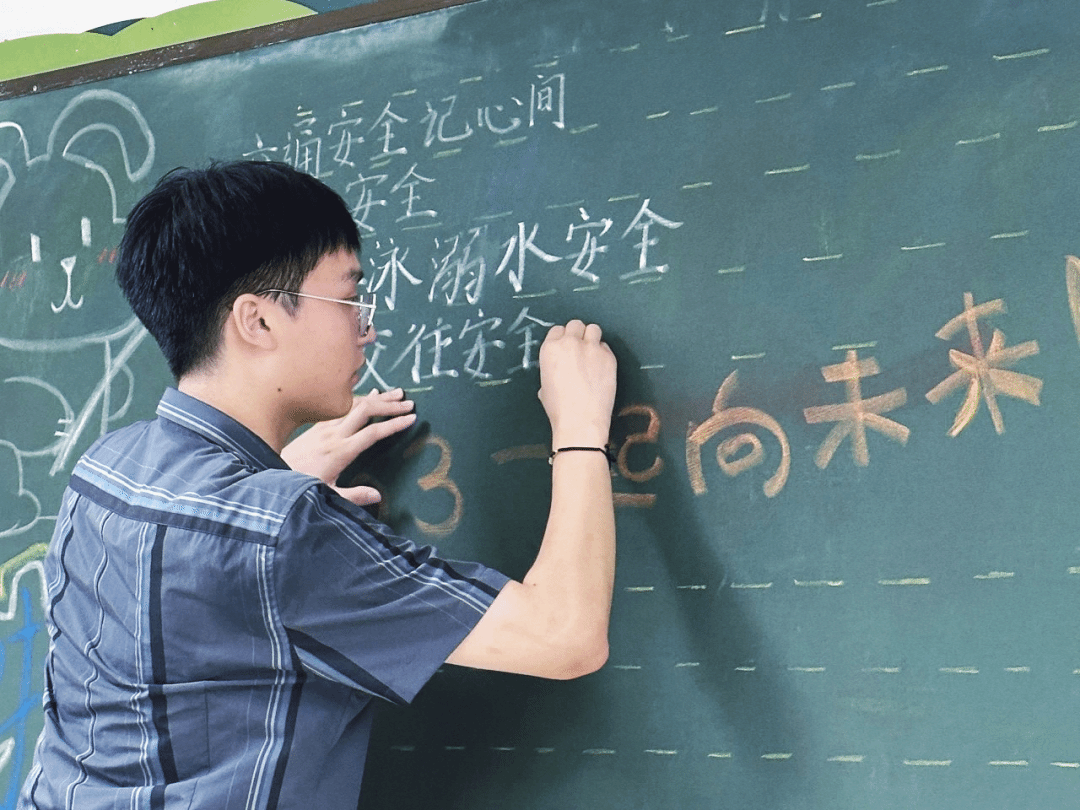 安全记心间
安全
泳溺水安全
交往安全
3一起向未来